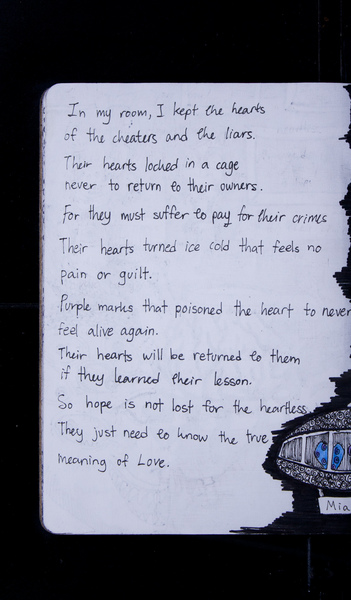 In my room, I kept the hearts
of the cheaters and the liars.
Their hearts locked in a cage
never to return to their owners.
For they must suffer to pay for their crimes
Their hearts turned ice cold that feels no
pain or guilt.
Purple marks that poisoned the heart to never
feel alive again.
Their hearts will be returned to them
if they learned their lesson.
So hope is not lost for the heartless
They just need to know the true
meaning of Love.
Mia